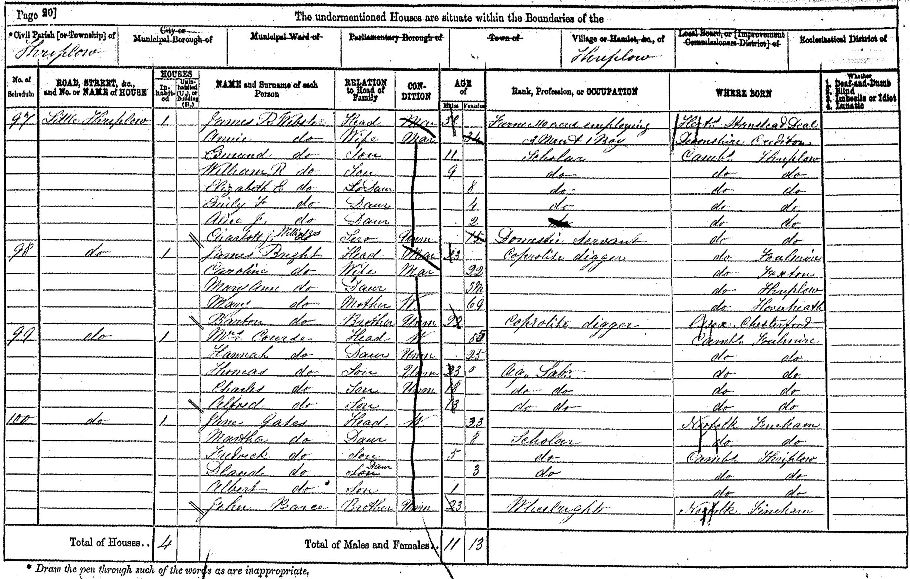 Page 20]
The undermentioned Houses are situate within the Boundaries of the
*Civil Parish [or Township] of
City or Municipal Borough of
Municipal Ward of
Parliamentary Borough of
Town of
Village or Hamlet, &c., of
Local Board, or [Improvement Commissioners District] of
Ecclesiastical District of
Thriplow
Thriplow
No. of Schedule
ROAD, STREET, &c., and No. or NAME of HOUSE
HOUSES
Inhabited
Uninhabited (U.), or Building (B.)
NAME and Surname of each Person
RELATION to Head of Family
CONDITION
AGE of
Males
Females
Rank, Profession, or OCCUPATION
WHERE BORN
Whether
1. Deaf-and-Dumb
2. Blind
3. Imbecile or Idiot
4. Lunatic
97 Little Thriplow 1 James Webster Head Mar Farmer employing
Annie do Wife Mar 2 Men & 1 Boy Devonshire Crediton
Edmund do Son 11 Scholar Cambs Thriplow
William R do Son 9 do do do
Elizabeth E do Daur 8 do do do
Emily do Daur 4 do do do
Alice J. do Daur 2 do do
Charlotte Serv Unm Domestic Servant do do
98 do 1 James Bright Head Mar 23 Coprolite digger do Foulmire
Caroline do Wife Mar 22 do Foxton
Mary Ann do Daur do Thriplow
Mary do Mother W 69 do
do Brother Unm 22 Coprolite digger Essex Chesterford
99 do 1 Mrs Head W 55 Cambs Foulmire
Hannah do Daur Unm 25 do do
Thomas do Son Unm 23 Ag. Labr do do
Charles do Son Unm 18 do do do do
Alfred do Son 13 do do do do
100 do 1 Jane Gates Head W 33 Norfolk Fincham
Martha do Daur 8 Scholar do do
Fredrick do Son 5 do Cambs Thriplow
Daur 3 do do do
Albert do Son 1 do do
John Brother Unm 23 Wheelwright Norfolk Fincham
Total of Houses.. 4
Total of Males and Females.. 11 13
* Draw the pen through such of the words as are inappropriate.